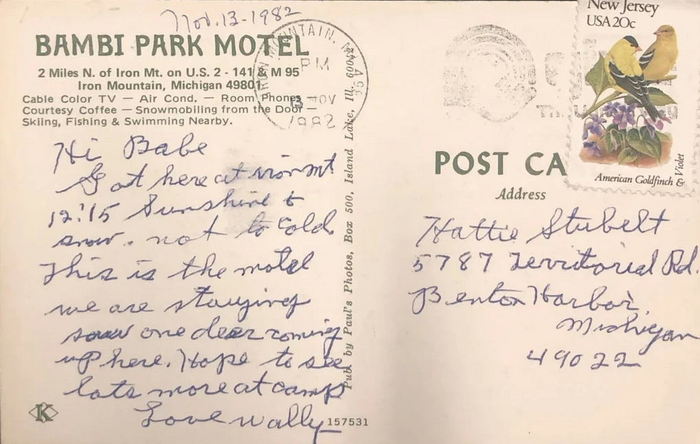 Nov. 13-1982
BAMBI PARK MOTEL
2 Miles N. of Iron Mt. on U.S. 2 - 141 & M 95
Iron Mountain, Michigan 49801
Cable Color TV — Air Cond. — Room Phones
Courtesy Coffee — Snowmobiling from the Door
Skiing, Fishing & Swimming Nearby.
Hi Babe
Got here at iron mt
12:15 Sunshine &
snow. not to cold
This is the motel
we are staying
saw one deer coming
up here. Hope to see
lots more at camp
Love Wally
K
157531
Pub. by Paul's Photos, Box 500, Island Lake, Ill. 60042
PM
NOV
1982
New Jersey
USA 20c
American Goldfinch & Violet
POST CA
Address
Hattie Stubelt
5787 Territorial Rd.
Benton Harbor,
Michigan
49022